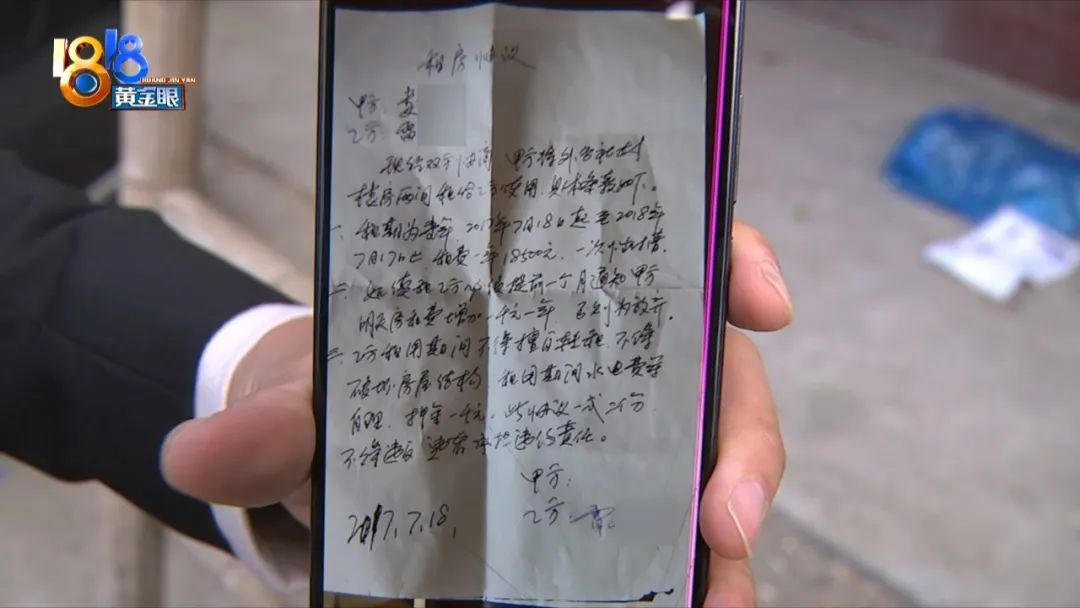 1818
HUANG JIN YAN
黄金眼
租房协议
甲方：娄
乙方：雷
现经双方协商 甲方将外
楼房两间租给乙方使用，具体条款如下。
一、租期为壹年 2017年7月18日起至2018年
7月17日止 租费一年18500元，一次性付清。
二、如续租乙方必须提前一个月通知甲方
明天房租费增加一千元一年 否则为放弃。
三、乙方租用期间不得擅自转租，不得
破坏房屋结构 租用期间水电费等
自理，押金一千元。此协议一式二份
不得违反 违者承担违约责任。
甲方：
乙方：雷
2017.7.18.